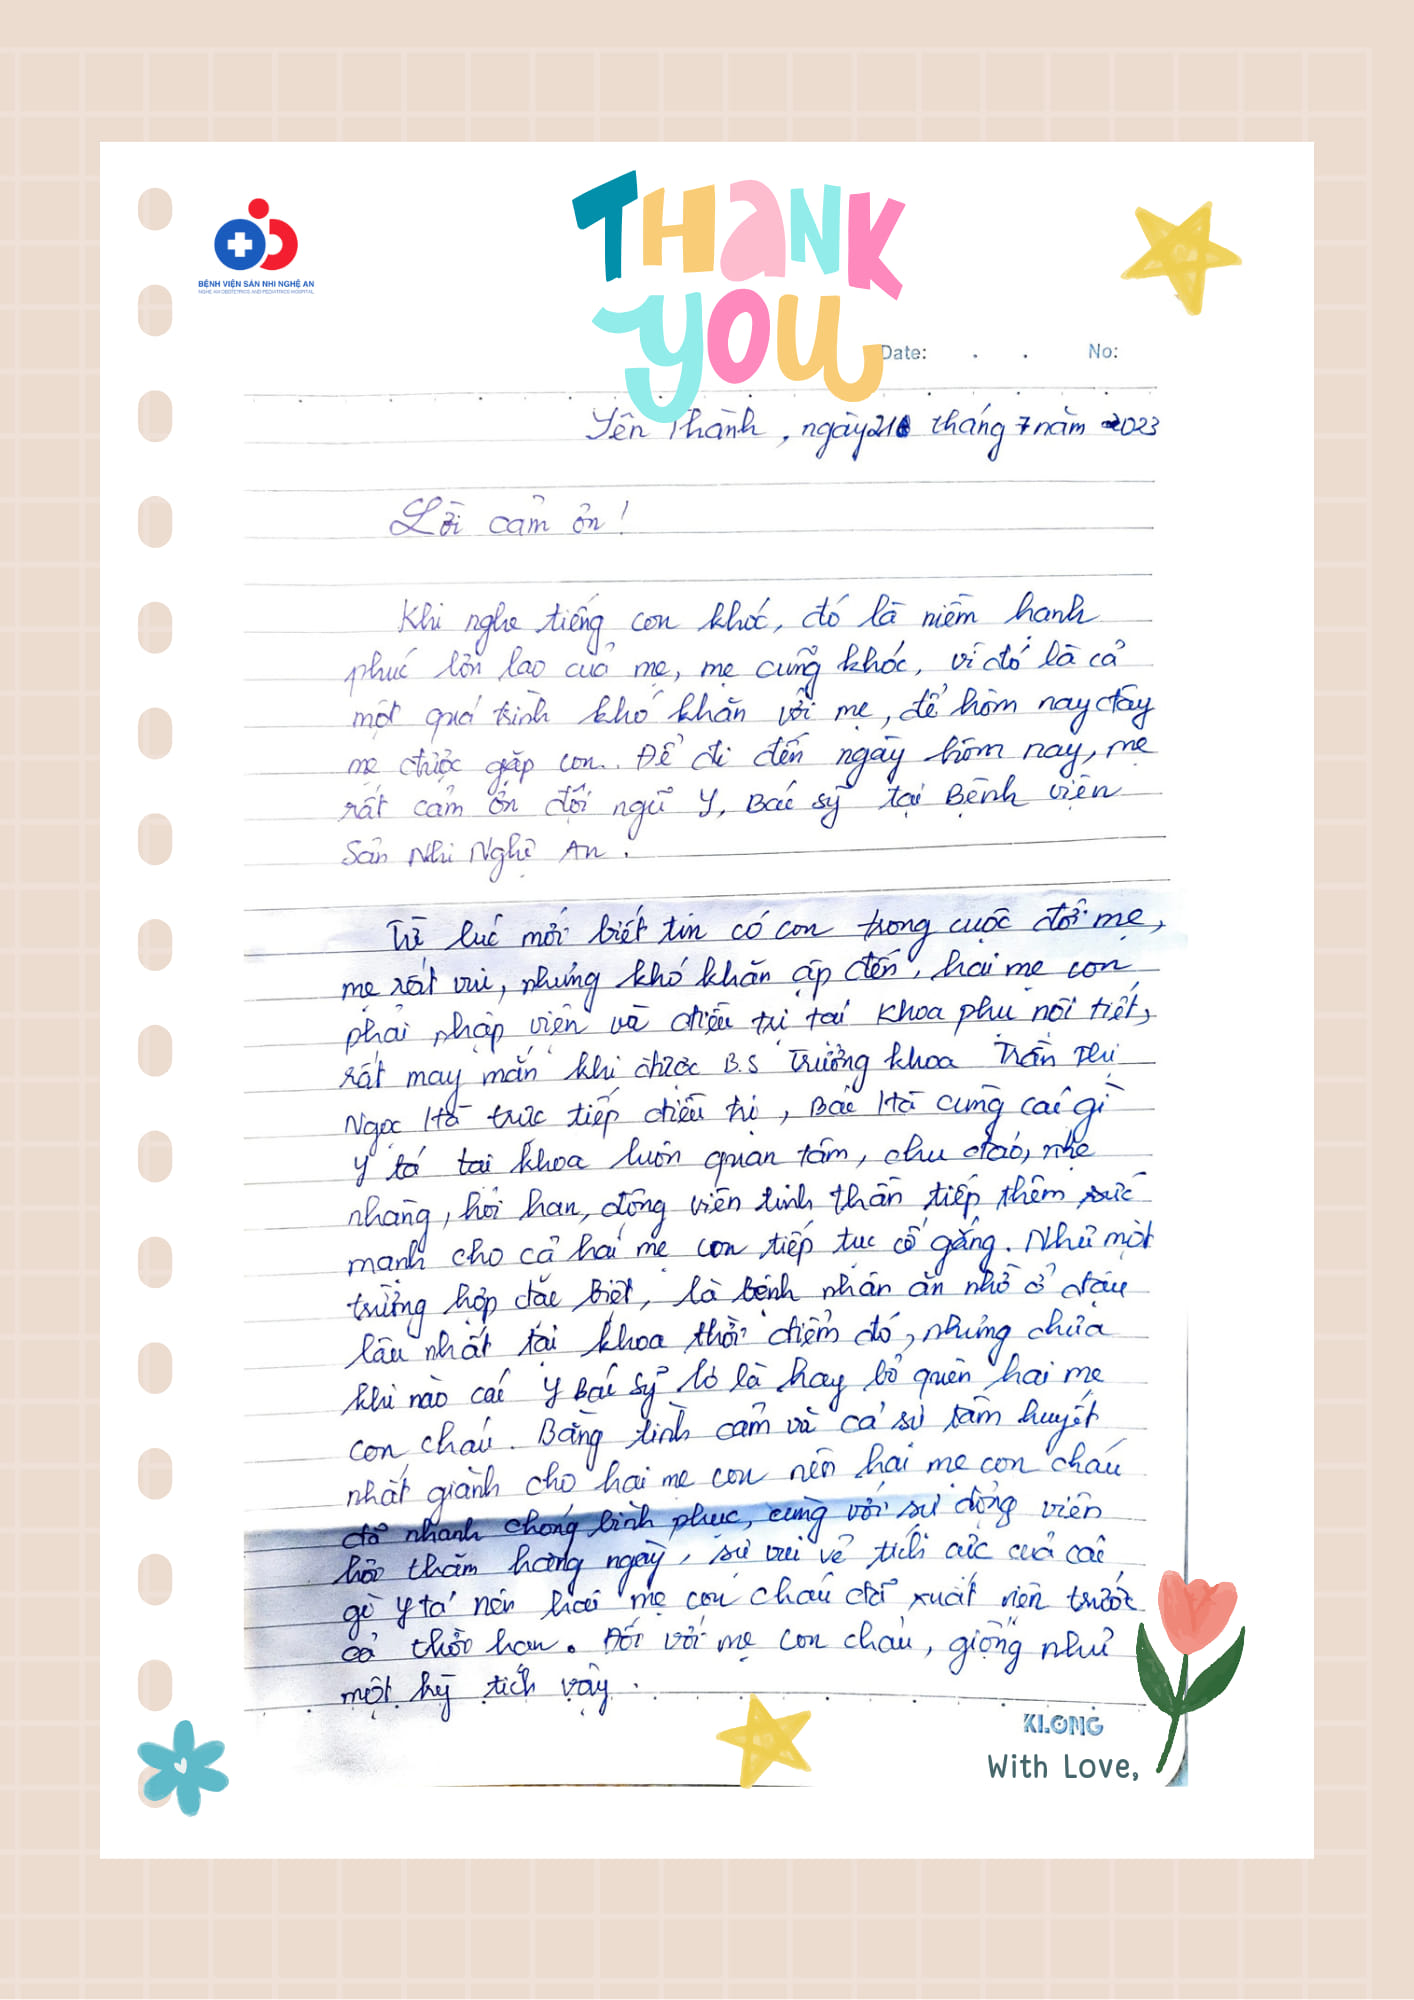 THANK
YOU
BỆNH VIỆN SẢN NHI NGHỆ AN
NGHE AN OBSTETRICS AND PEDIATRICS HOSPITAL
Date: . . No:
Yên Thành, ngày 21 tháng 7 năm 2023
Lời cảm ơn!
Khi nghe tiếng con khóc, đó là niềm hạnh
phúc lớn lao của mẹ, mẹ cũng khóc, vì đó là cả
một quá trình khó khăn với mẹ, để hôm nay đây
mẹ được gặp con. Để đi đến ngày hôm nay, mẹ
rất cảm ơn đội ngũ Y, Bác sỹ tại Bệnh viện
Sản Nhi Nghệ An.
Từ lúc mới biết tin có con trong cuộc đời mẹ,
mẹ rất vui, nhưng khó khăn ập đến, hai mẹ con
phải nhập viện và điều trị tại khoa phụ nội tiết,
rất may mắn khi được B.S Trưởng khoa Trần Thị
Ngọc Hà trực tiếp điều trị, Bác Hà cùng các gì
y tá tại khoa luôn quan tâm, chu đáo, nhẹ
nhàng, hỏi han, động viên tinh thần tiếp thêm sức
mạnh cho cả hai mẹ con tiếp tục cố gắng. Như một
trường hợp đặc biệt, là bệnh nhân ăn nhờ ở đậu
lâu nhất tại khoa thời điểm đó, nhưng chưa
khi nào các Y Bác sỹ lơ là hay bỏ quên hai mẹ
con cháu. Bằng tình cảm và cả sự tâm huyết
nhất giành cho hai mẹ con nên hai mẹ con cháu
đã nhanh chóng bình phục, cùng với sự động viên
hỏi thăm hàng ngày, sự vui vẻ tích cực của các
gì y tá nên hai mẹ con cháu đã xuất viện trước
cả thời hạn. Đối với mẹ con cháu, giống như
một kỳ tích vậy.
KLONG
With Love,